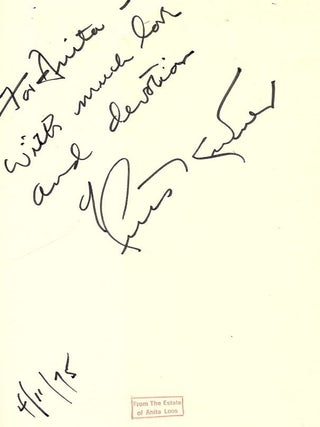 For Anita -
with much love
and devotion
4/11/75
From The Estate
of Anita Loos